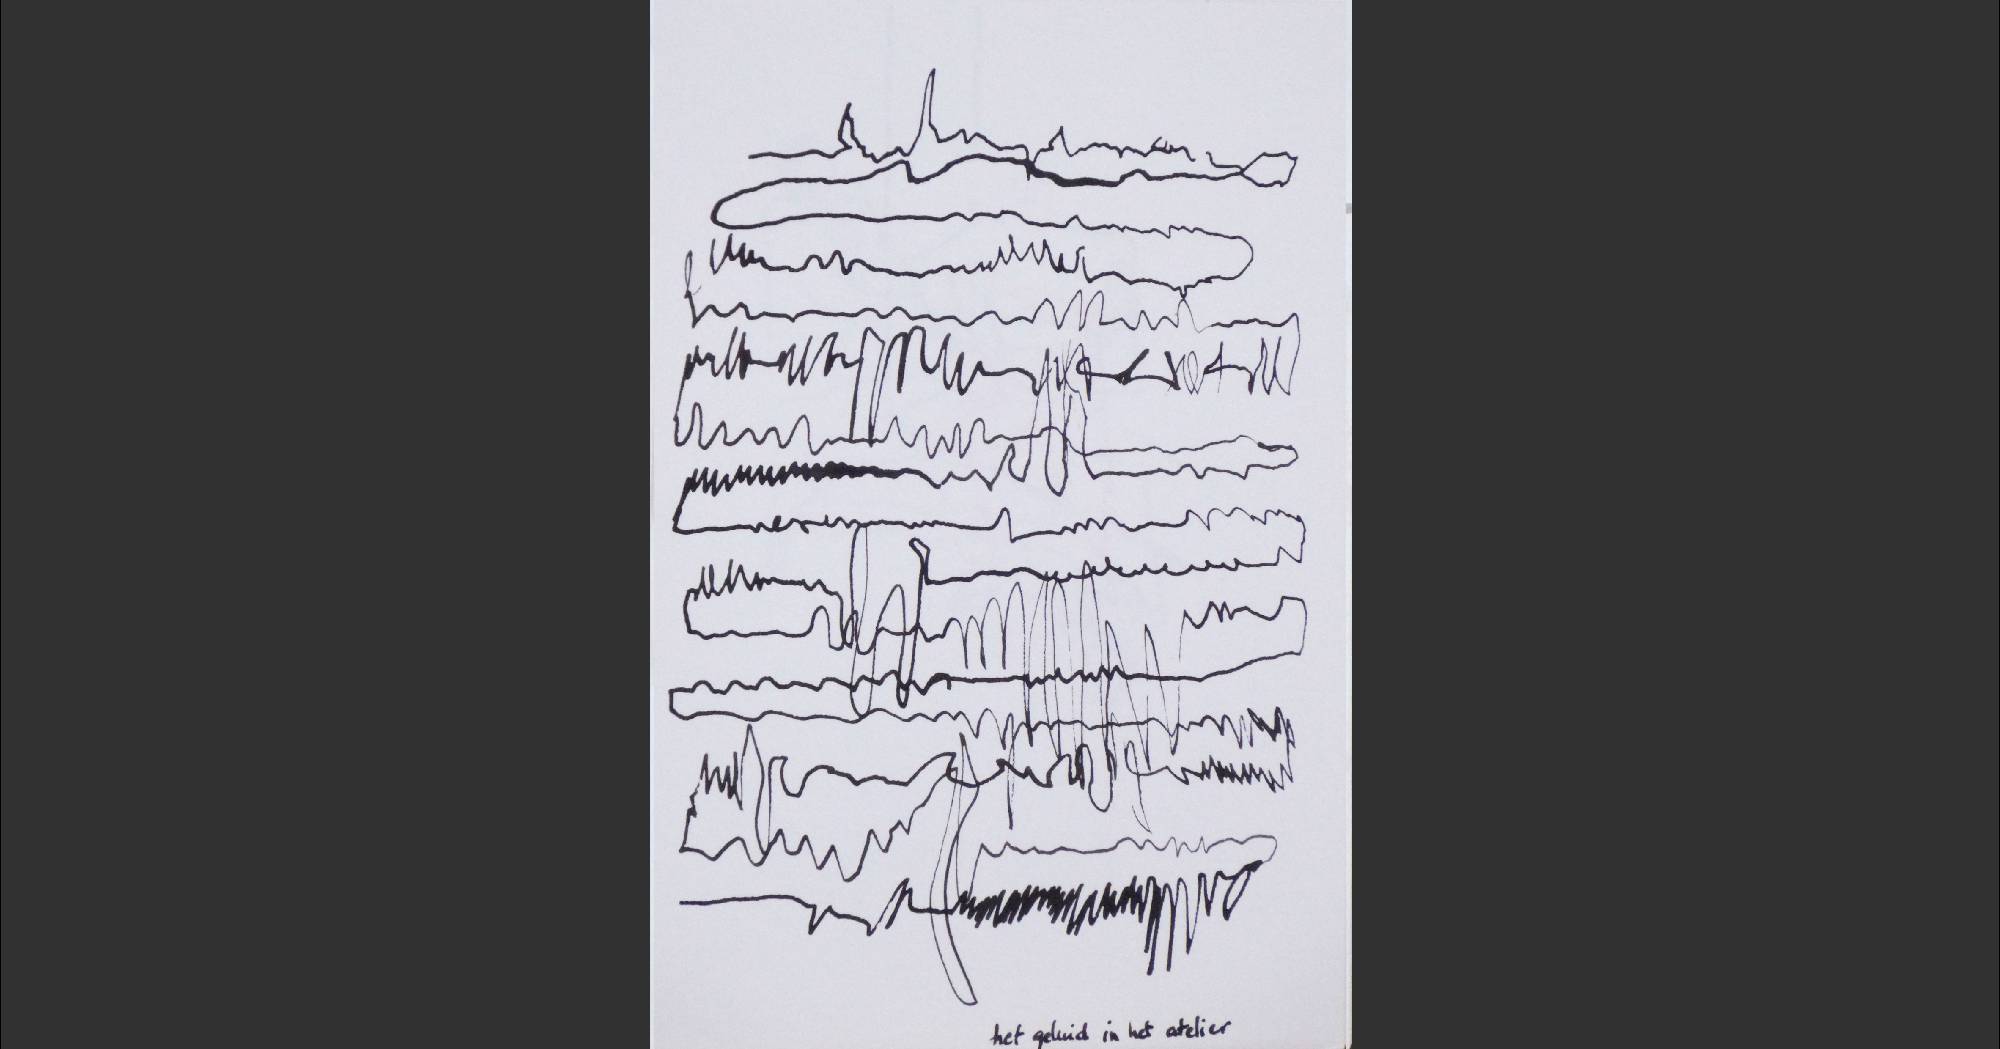 het geluid in het atelier